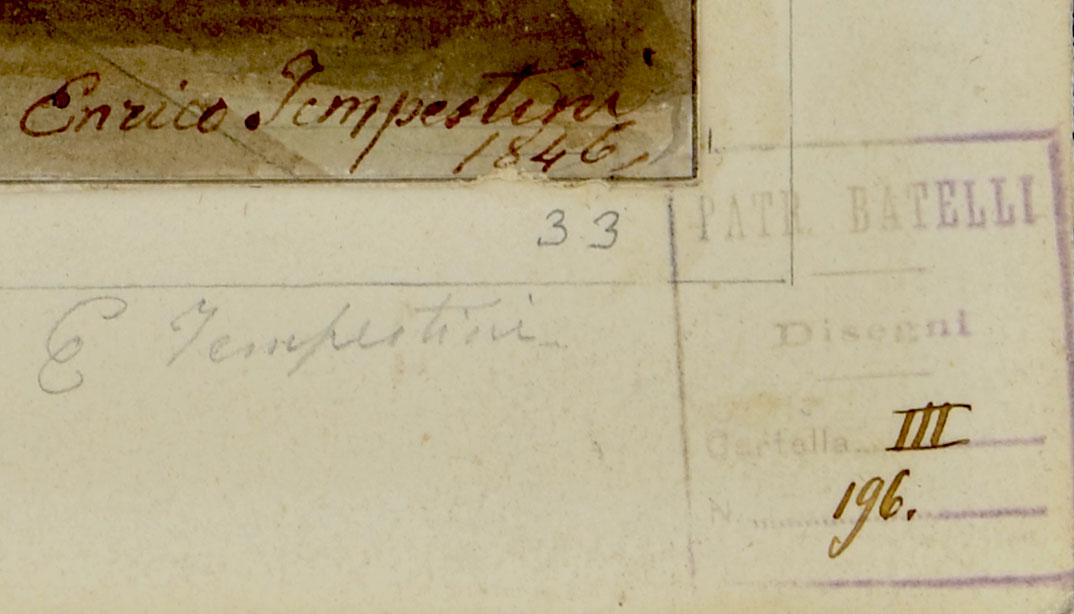 Enrico Tempestini
1846
33
E Tempestini
PATR. BATELLI
Disegni
Cartella III
N. 196.